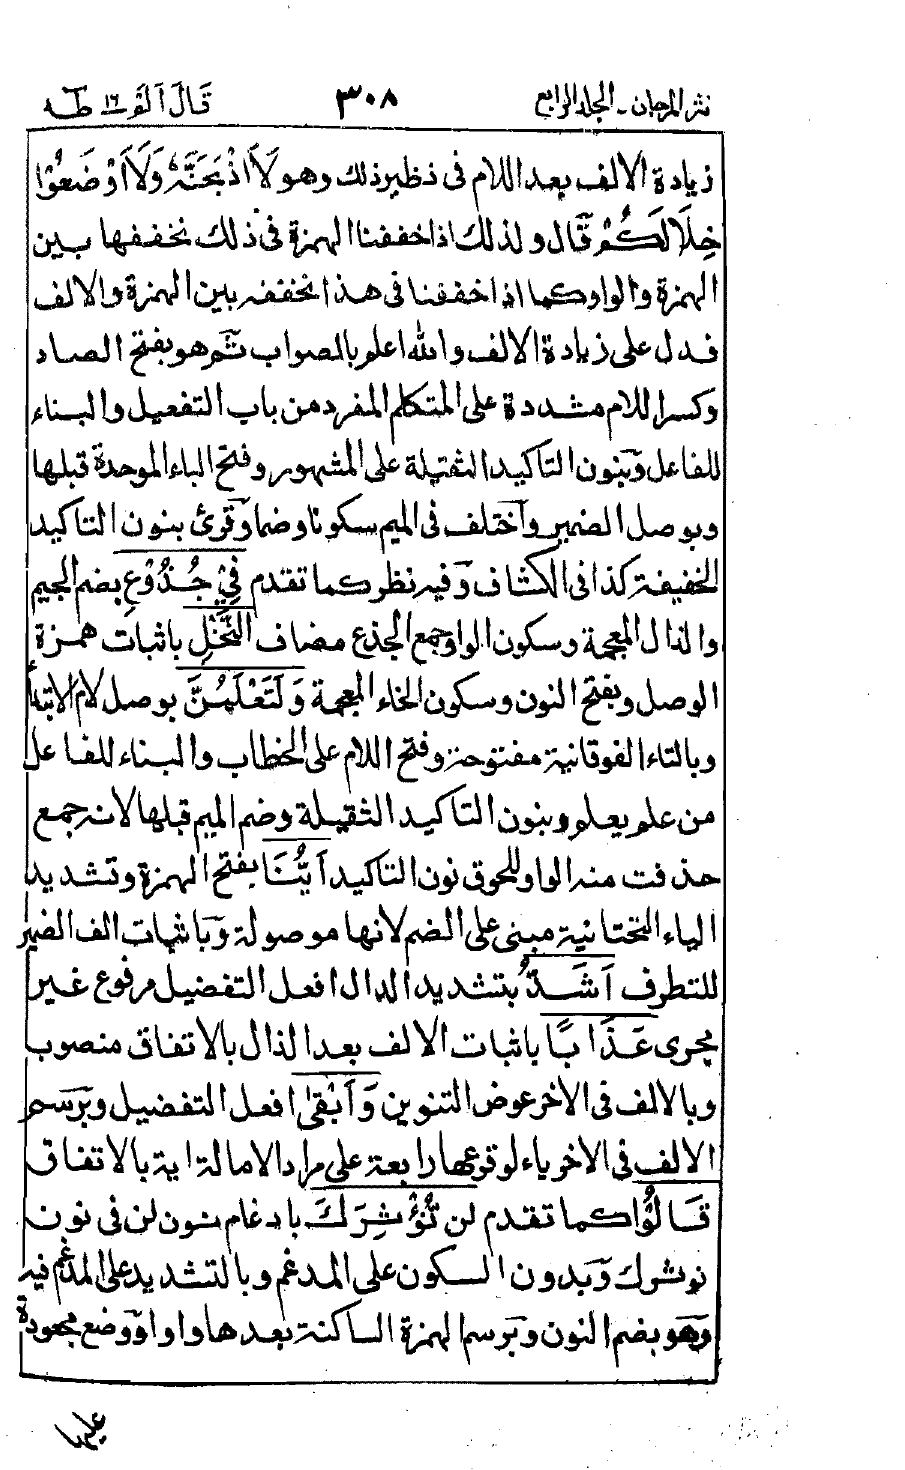 نثر المرجان ـ الجلد الرابع ٣٠٨ قَالَ اَلَمْ ١٦ طٰهٰ
زيادة الالف بعد اللام فى نظير ذلك وهو لَاَاذْبَحَنَّهٗ وَلَاَاَوْضَعُوْا
خِلَالَكُمْ قَال ولذلك اذا خففنا الهمزة فى ذلك نخففها بين
الهمزة والواو كما اذا خففنا فى هذا نخففه بين الهمزة والالف
فدل على زيادة الالف والله اعلم بالصواب ثم هو بفتح الصاد
وكسر اللام مشددة على المتكلم المفرد من باب التفعيل والبناء
للفاعل وبنون التاكيد الثقيلة على المشهور وفتح الباء الموحدة قبلها
وبوصل الضمير واختلف فى الميم سكونا وضما وقرئ بنون التاكيد
الخفيفة كذا فى الكشاف وفيه نظر كما تقدم فِيْ جُذُوْعِ بضم الجيم
والذال المعجمة وسكون الواو جمع الجذع مضاف النَّخْلِ باثبات همزة
الوصل وبفتح النون وسكون الخاء المعجمة وَلَتَعْلَمُنَّ بوصل لام الابتدأ
وبالتاء الفوقانية مفتوحة وفتح اللام على الخطاب والبناء للفاعل
من علم يعلم وبنون التاكيد الثقيلة وضم الميم قبلها لانه جمع
حذفت منه الواو للحوق نون التاكيد اَيُّنَا بفتح الهمزة وتشديد
الياء التحتانية مبنى على الضم لانها موصولة وباثبات الف الضمير
للتطرف اَشَدُّ بتشديد الدال افعل التفضيل مرفوع غير
مجرى عَذَابًا باثبات الالف بعد الذال بالاتفاق منصوب
وبالالف فى الاخر عوض التنوين وَاَبْقٰى افعل التفضيل وبرسم
الالف فى الاخر ياء لوقوعها رابعة على مراد الامالة اية بالاتفاق
قَالُوْا كما تقدم لن نُّؤْثِرَكَ بادغام نون لن فى نون
نوثرك وبدون السكون على المدغم وبالتشديد على المدغم فيه
وهو بضم النون وبرسم الهمزة الساكنة بعدها واوا ووضع مجعودة
عليها